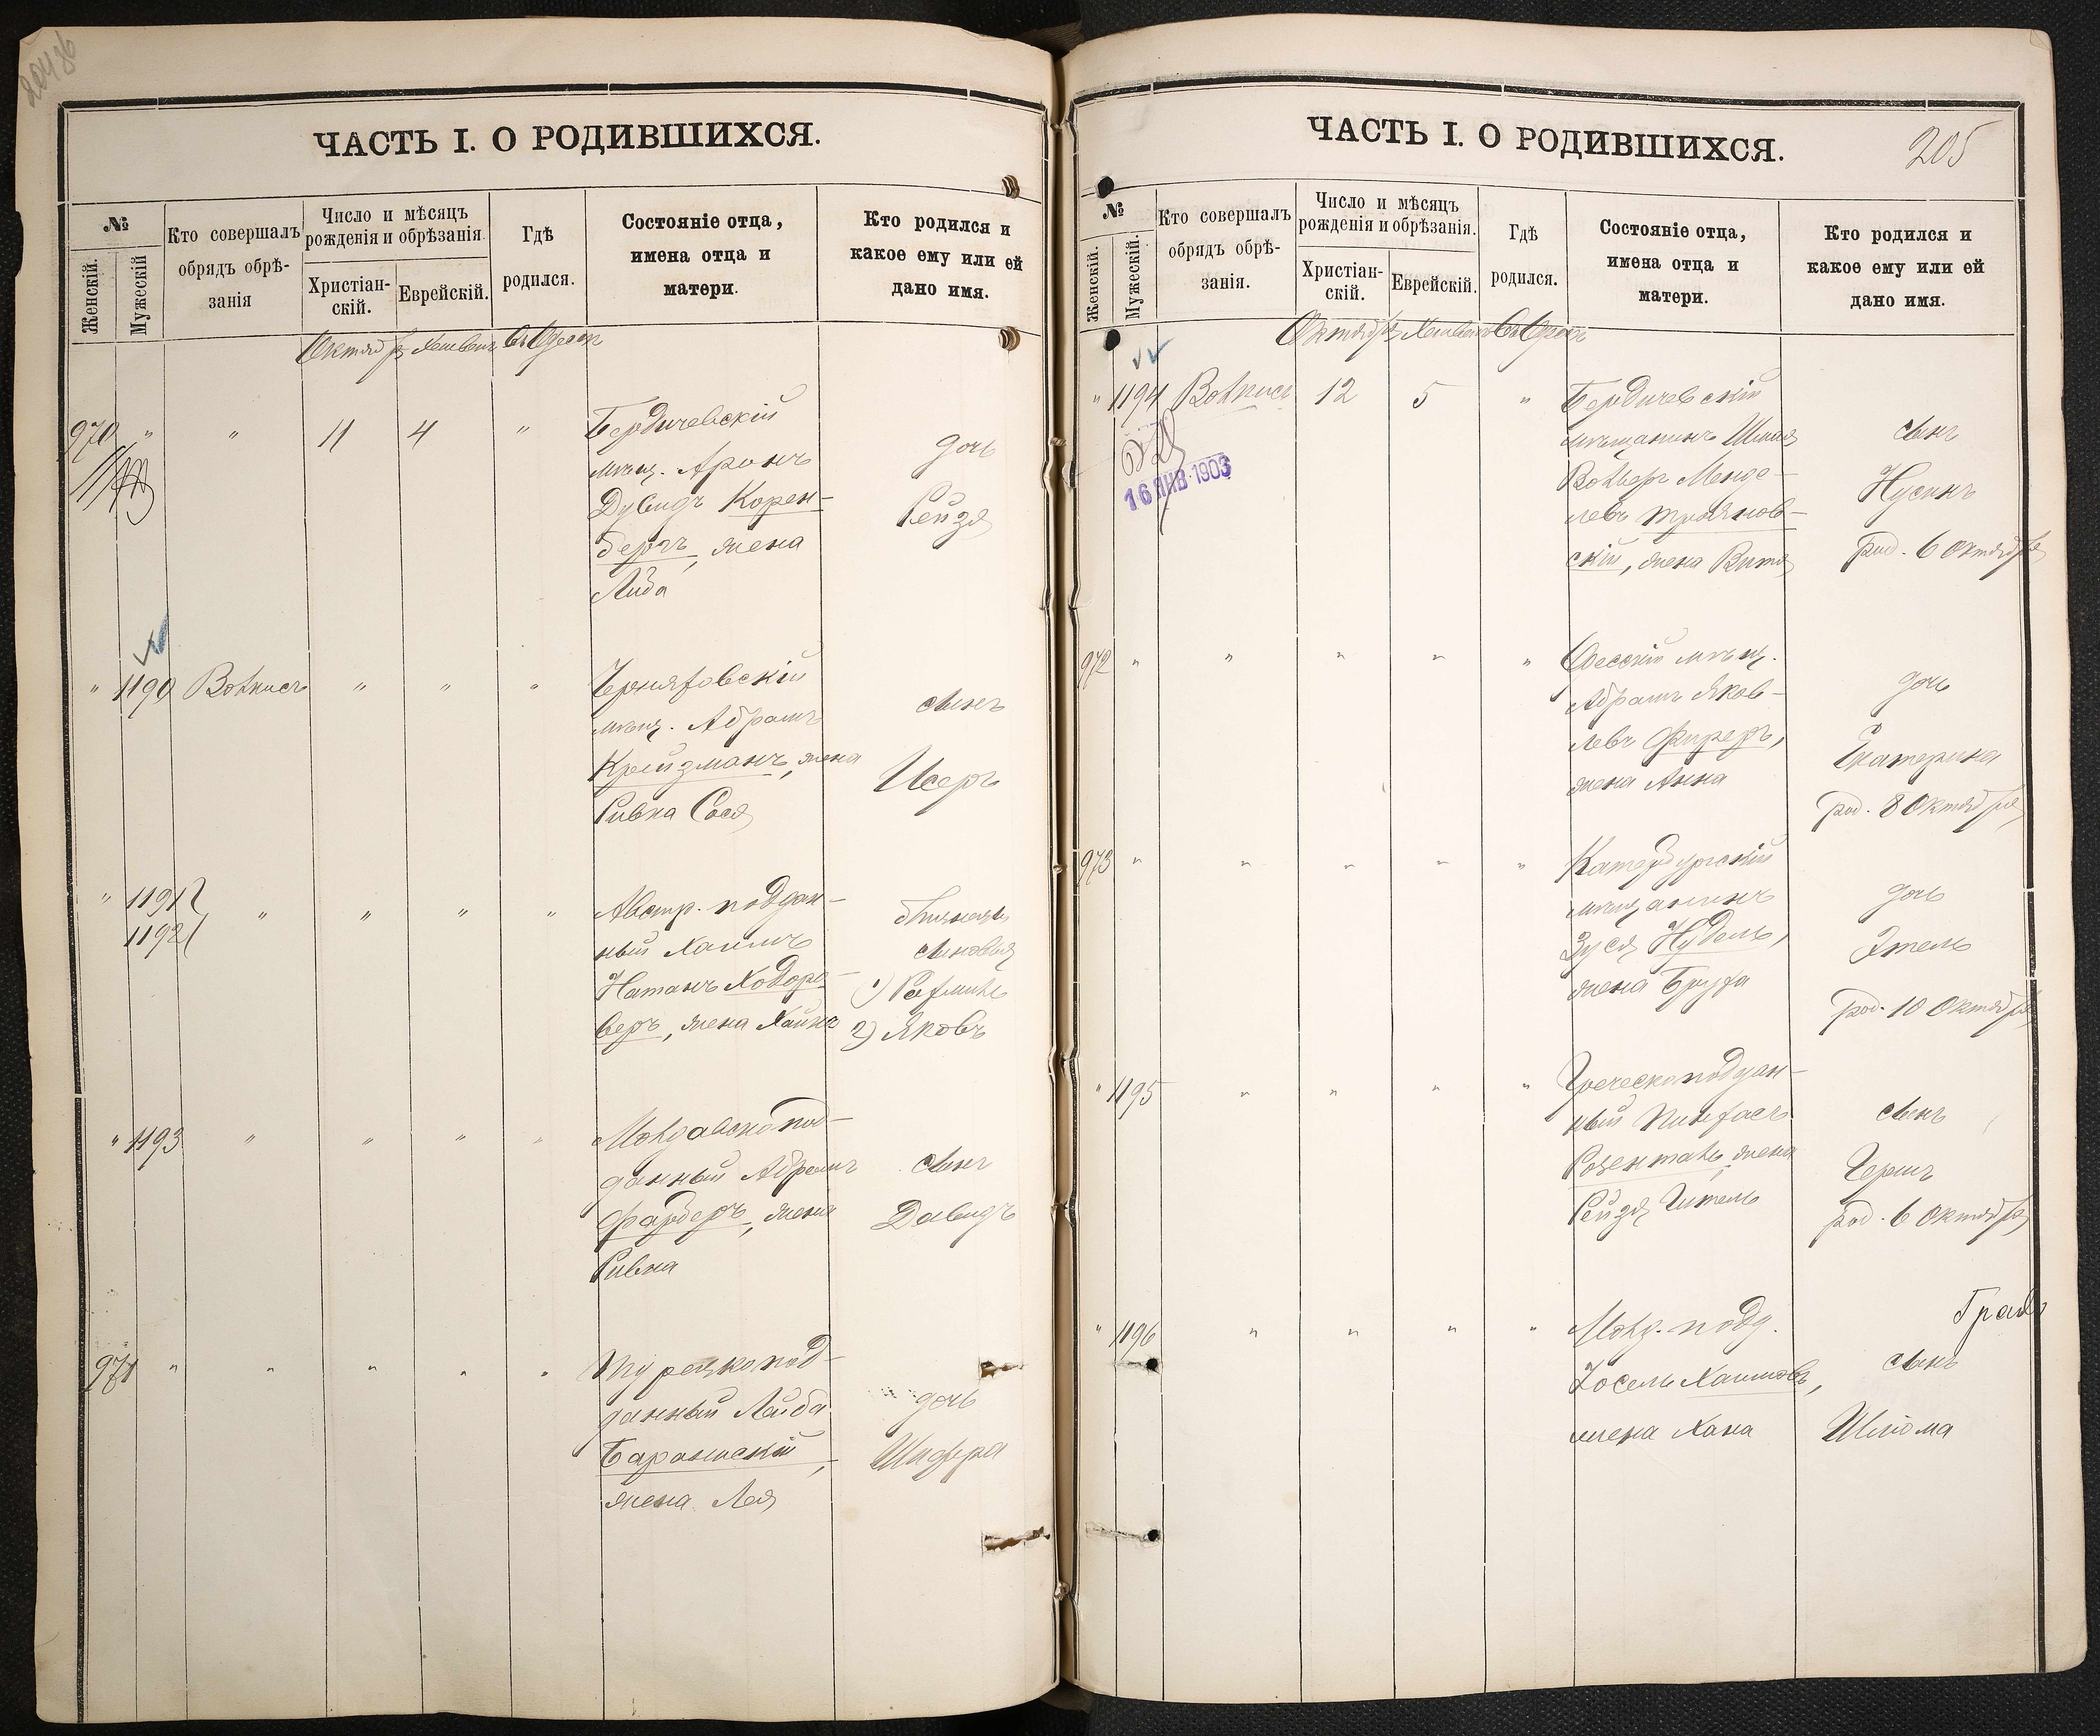 ЧАСТЬ I. О РОДИВШИХСЯ.
№
Женскій.
Мужескій
Кто совершалъ
обрядъ обрѣ-
занія
Число и мѣсяцъ
рожденія и обрѣзанія.
Христіан-
скій.
Еврейскій.
Гдѣ
родился.
Состояніе отца,
имена отца и
матери.
Кто родился и
какое ему или ей
дано имя.
Октябрь Хешвенъ Въ Одессѣ
970 " " 11 4 "
Бердичевскій
мѣщ. Аронъ
Дувидъ Корен-
бергъ, жена
Либа
дочь
Рейзя
" 1190 Волкисъ " " "
Черняховскій
мѣщ. Абрамъ
Крейзманъ, жена
Ривка Сося
сынъ
Исеръ
" 1191
1192 " " " "
Австр. поддан-
ный Хаимъ
Натанъ Ходоро-
веръ, жена
близнецы
сыновья
1)
2) Яковъ
" 1193 " " " "
Молдавскопод-
данный Абрамъ
Фарберъ, жена
Ривка
сынъ
Давидъ
971 " " " " "
Турецкопод-
данный Лейба
жена Лея
дочь
Шифра
ЧАСТЬ I. О РОДИВШИХСЯ.
205
№
Женскій.
Мужескій.
Кто совершалъ
обрядъ обрѣ-
занія.
Число и мѣсяцъ
рожденія и обрѣзанія.
Христіан-
скій.
Еврейскій.
Гдѣ
родился.
Состояніе отца,
имена отца и
матери.
Кто родился и
какое ему или ей
дано имя.
Октябрь Хешвенъ Въ Одессѣ
" 1194 Волкисъ 12 5 "
16 ЯНВ. 1903
Бердичевскій
мѣщанинъ
Вольверъ Менде-
левъ Трояновскій
скій, жена Витя
сынъ
Нусинъ
род. 6 Октября
972 " " " " "
Одесскій мѣщ.
Абрамъ Яков-
левъ Фиреръ,
жена Анна
дочь
Екатерина
род. 8 Октября
973 " " " " "
Катербургскій
мѣщанинъ
Зуся Нудель,
жена Бруха
дочь
Этель
род. 10 Октября
" 1195 " " " "
Греческоподдан-
ный Пинхасъ
Розенталь, жена
Рейзя Гитель
сынъ
Гершъ
род. 6 Октября
" 1196 " " " "
Молд. подд.
Іосель Хаимовъ,
жена Хана
сынъ
Шлома